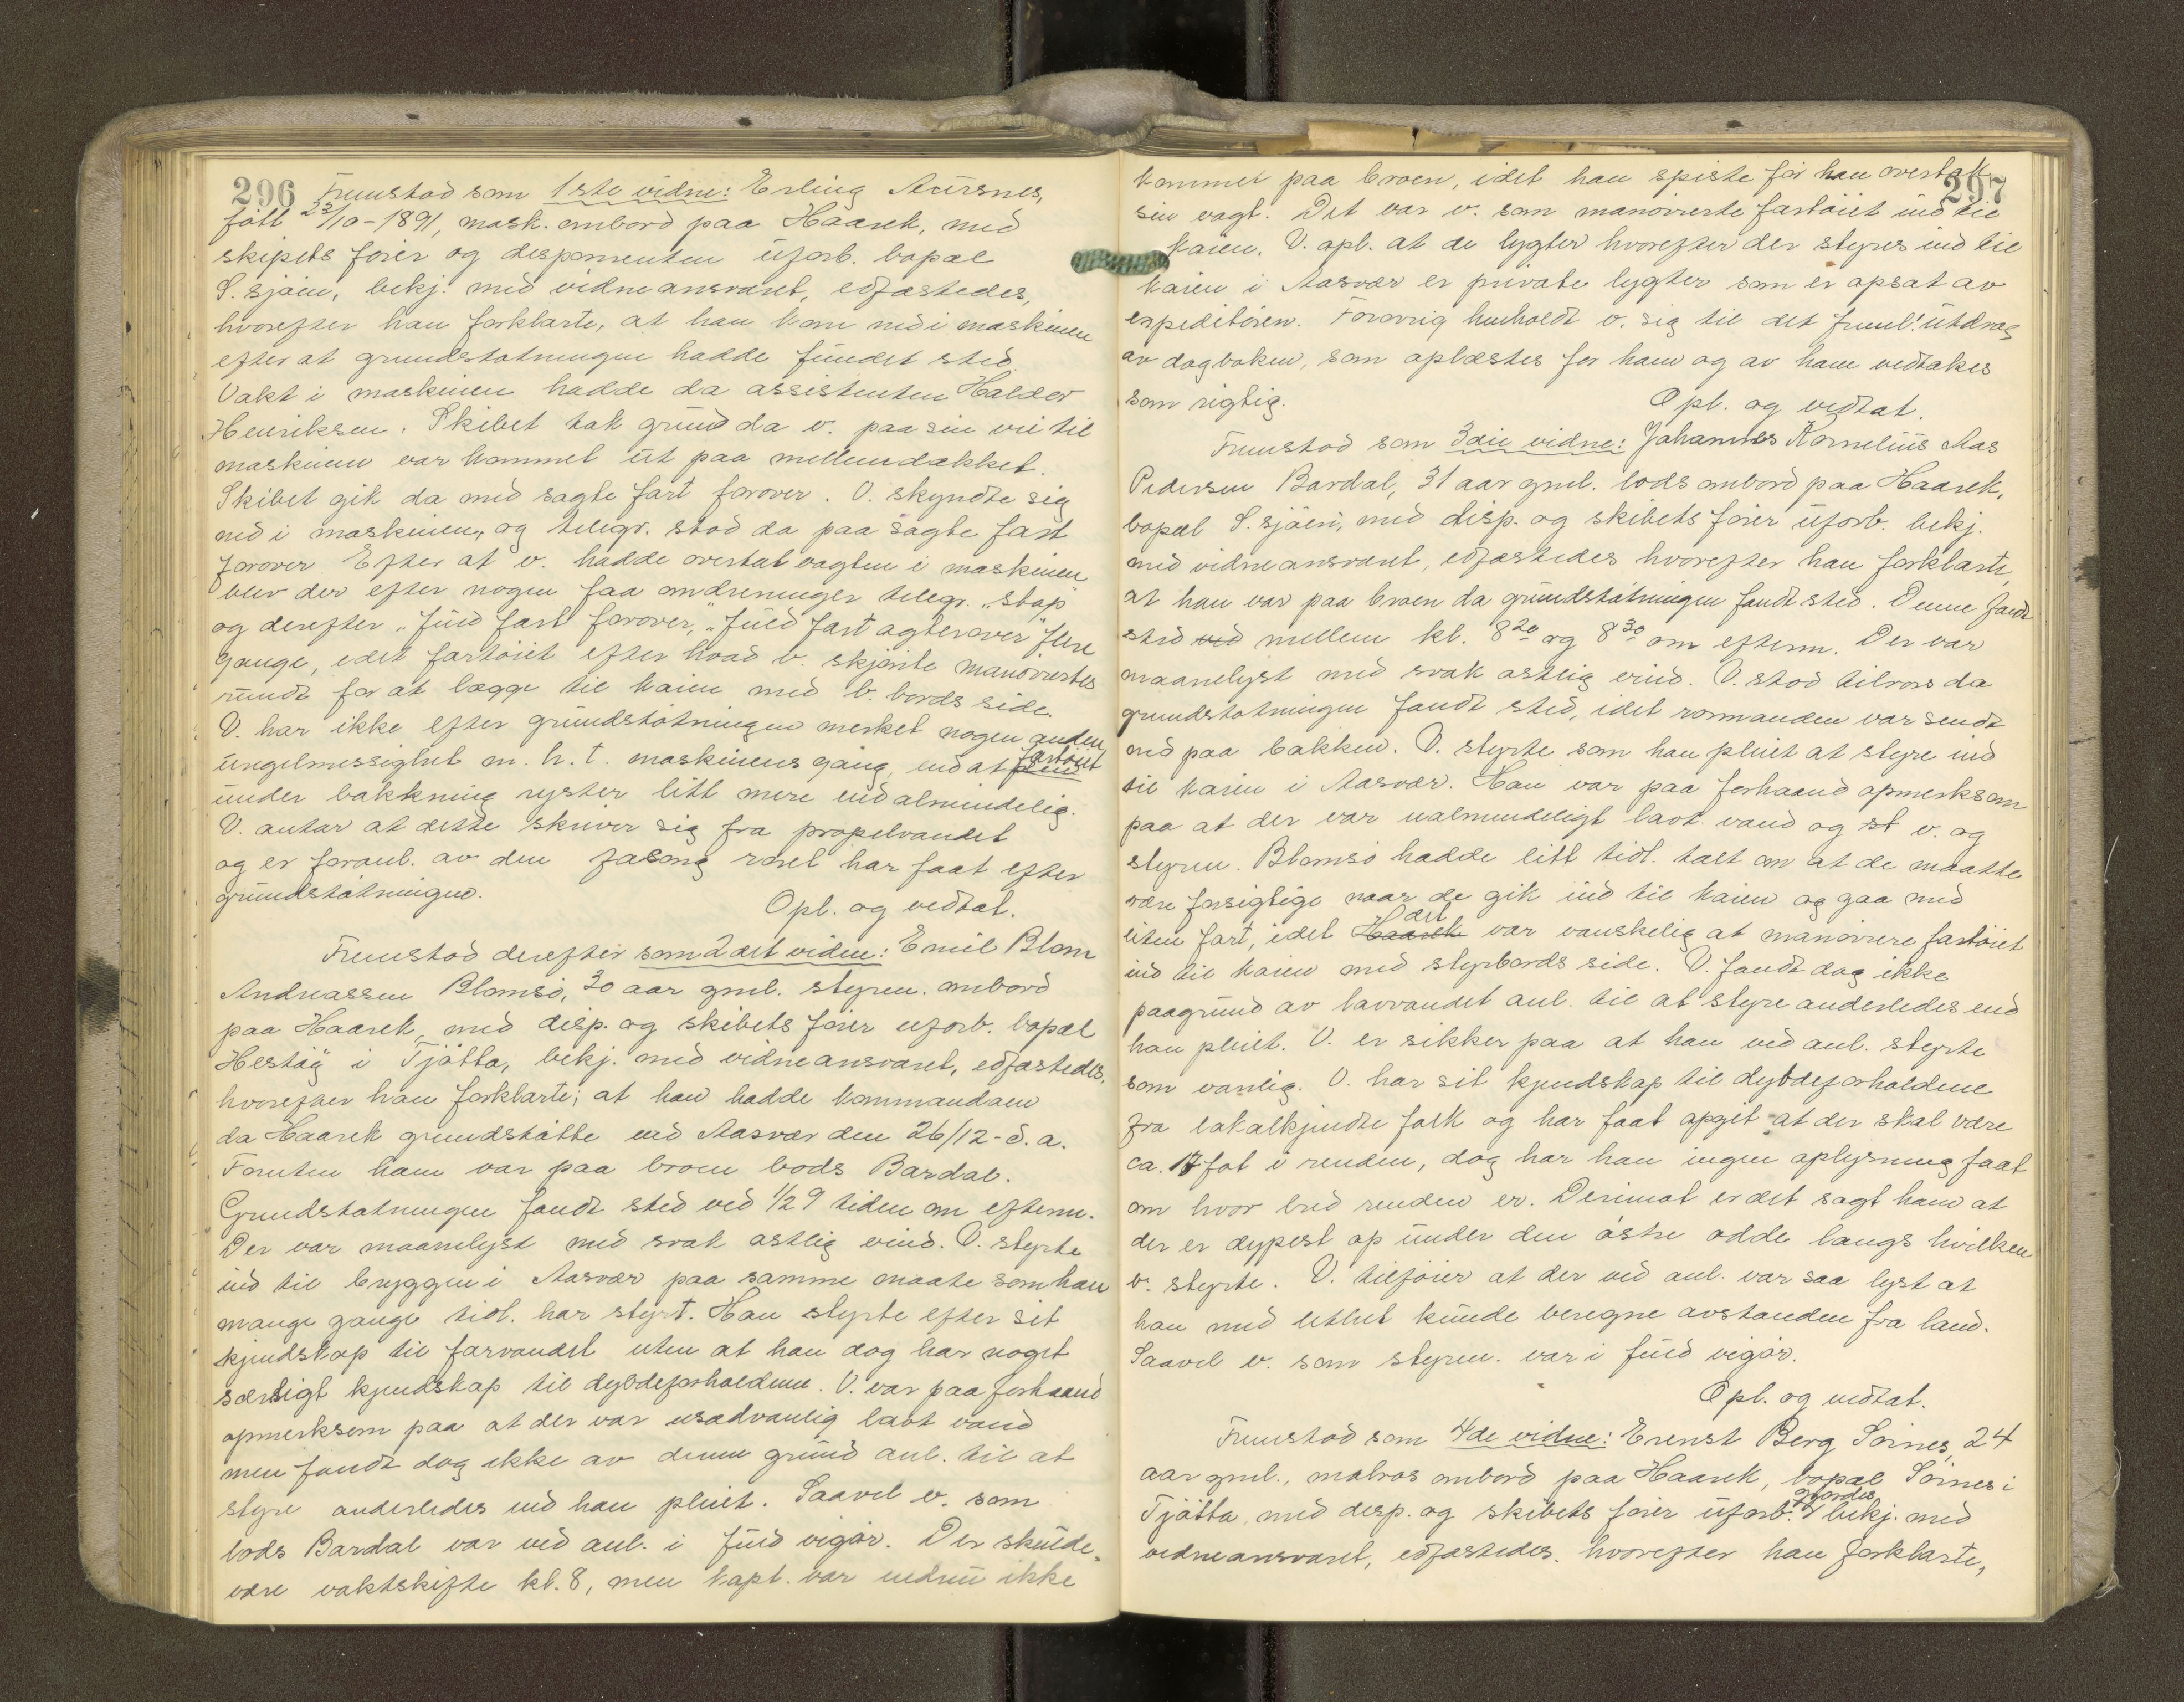 296
Fremstod som 1ste vidne: Erling Aursnes,
født 23/10-1891, mask. ombord paa Haarek, med
skipets fører og desponenten uforb. bopæl
S.sjøen, bekj. med vidneansvaret, edfæstedes,
hvorefter han forklarte, at han kom ned i maskinen
efter at grundstøtningen hadde fundet sted.
Vakt i maskinen hadde da assistenten Haldor
Henriksen. Skibet tok grund da v. paa sin vei til
maskinen var kommet ut paa mellemdækket.
Skibet gik da med sagte fart forover. V. skyndte sig
ned i maskinen, og telegr. stod da paa sagte fart
forover. Efter at v. hadde overtat vagten i maskinen
blev der efter nogen faa omdreininger telegr. "stop"
og derefter "fuld fart forover," "fuld fart agterover" flere
gange, idet fartøiet efter hvad v. skjønte manøvrertes
rundt for at lægge til kaien med b. bords side.
V. har ikke efter grundstøtningen merket nogen anden
uregelmessighet m. h. t. maskinens gang, end at fartøiet
under bakkning ryster litt mere end almindelig.
V. antar at dette skriver sig fra propelvandet
og er foranl. av den fasong roret har faat efter
grundstøtningen.
Opl. og vedtat.
Fremstod derefter som 2det vidne: Emil Blom
Andreassen Blomsø, 30 aar gml. styrm. ombord
paa Haarek, med disp. og skibets fører uforb. bopæl
Hestøy i Tjøtta, bekj. med vidneansvaret, edfæstedes,
hvorefter han forklarte; at han hadde kommandoen
da Haarek grundstøtte ved Aasvær den 26/12-d.a.
Foruten ham var paa broen lods Bardal.
Grundstøtningen fandt sted ved 1/2 9 tiden om efterm.
Der var maanelyst med svak østlig vind. V. styrte
ind til bryggen i Aasvær paa samme maate som han
mange gange tidl. har styrt. Han styrte efter sit
kjendskap til farvandet uten at han dog har noget
særligt kjendskap til dybdeforholdene. V. var paa forhaand
opmerksom paa at der var usædvanlig lavt vand
men fandt dog ikke av denne grund anl. til at
styre anderledes end han pleiet. Saavel v. som
lods Bardal var ved anl. i fuld vigør. Der skulde
være vaktskifte kl. 8, men kapt. var endnu ikke
297
kommet paa broen, idet han spiste før han overtok
sin vagt. Det var v. som manøvrerte fartøiet ind til
kaien. V. opl. at de lygter hvorefter der styres ind til
kaien i Aasvær er private lygter som er opsat av
expeditøren. Forøvrig henholdt v. sig til det freml. utdrag
av dagboken, som oplæstes for ham og av ham vedtakes
som rigtig.
Opl. og vedtat.
Fremstod som 3die vidne: Johannes Kornelius Aas
Pedersen Bardal, 31 aar gml. lods ombord paa Haarek,
bopæl S.sjøen, med disp. og skibets fører uforb. bekj.
med vidneansvaret, edfæstedes hvorefter han forklarte,
at han var paa broen da grundstøtningen fandt sted. Denne fandt
sted ved mellem kl. 8 20 og 8 30 om efterm. Der var
maanelyst med svak østlig vind. V. stod tilrors da
grundstøtningen fandt sted, idet rormanden var sendt
ned paa bakken. V. styrte som han pleiet at styre ind
til kaien i Aasvær. Han var paa forhaand opmerksom
paa at der var ualmindeligt lavt vand og st v. og
styrm. Blomsø hadde litt tidl. talt om at de maatte
være forsigtige naar de gik ind til kaien og gaa med
liten fart, idet Haarek det var vanskelig at manøvrere fartøiet
ind til kaien med styrbords side. V. fandt dog ikke
paagrund av lavvandet anl. til at styre anderledes end
han pleiet. V. er sikker paa at han ved anl. styrte
som vanlig. V. har sit kjendskap til dybdeforholdene
fra lokalkjendte folk og har faat opgit at der skal være
ca. 17 fot i renden, dog har han ingen oplysning faat
om hvor bred renden er. Derimot er det sagt ham at
der er dypest op under den østre odde langs hvilken
v. styrte. V. tilføier at der ved anl. var saa lyst at
han med lethet kunde beregne avstanden fra land.
Saavel v. som styrm. var i fuld vigør.
Opl. og vedtat.
Fremstod som 4de vidne: Erenst Berg Sørnes, 24
aar gml., matros ombord paa Haarek, bopæl Sørnes i
Tjøtta, med disp. og skibets fører uforb. gjordes bekj. med
vidneansvaret, edfæstedes. hvorefter han forklarte,